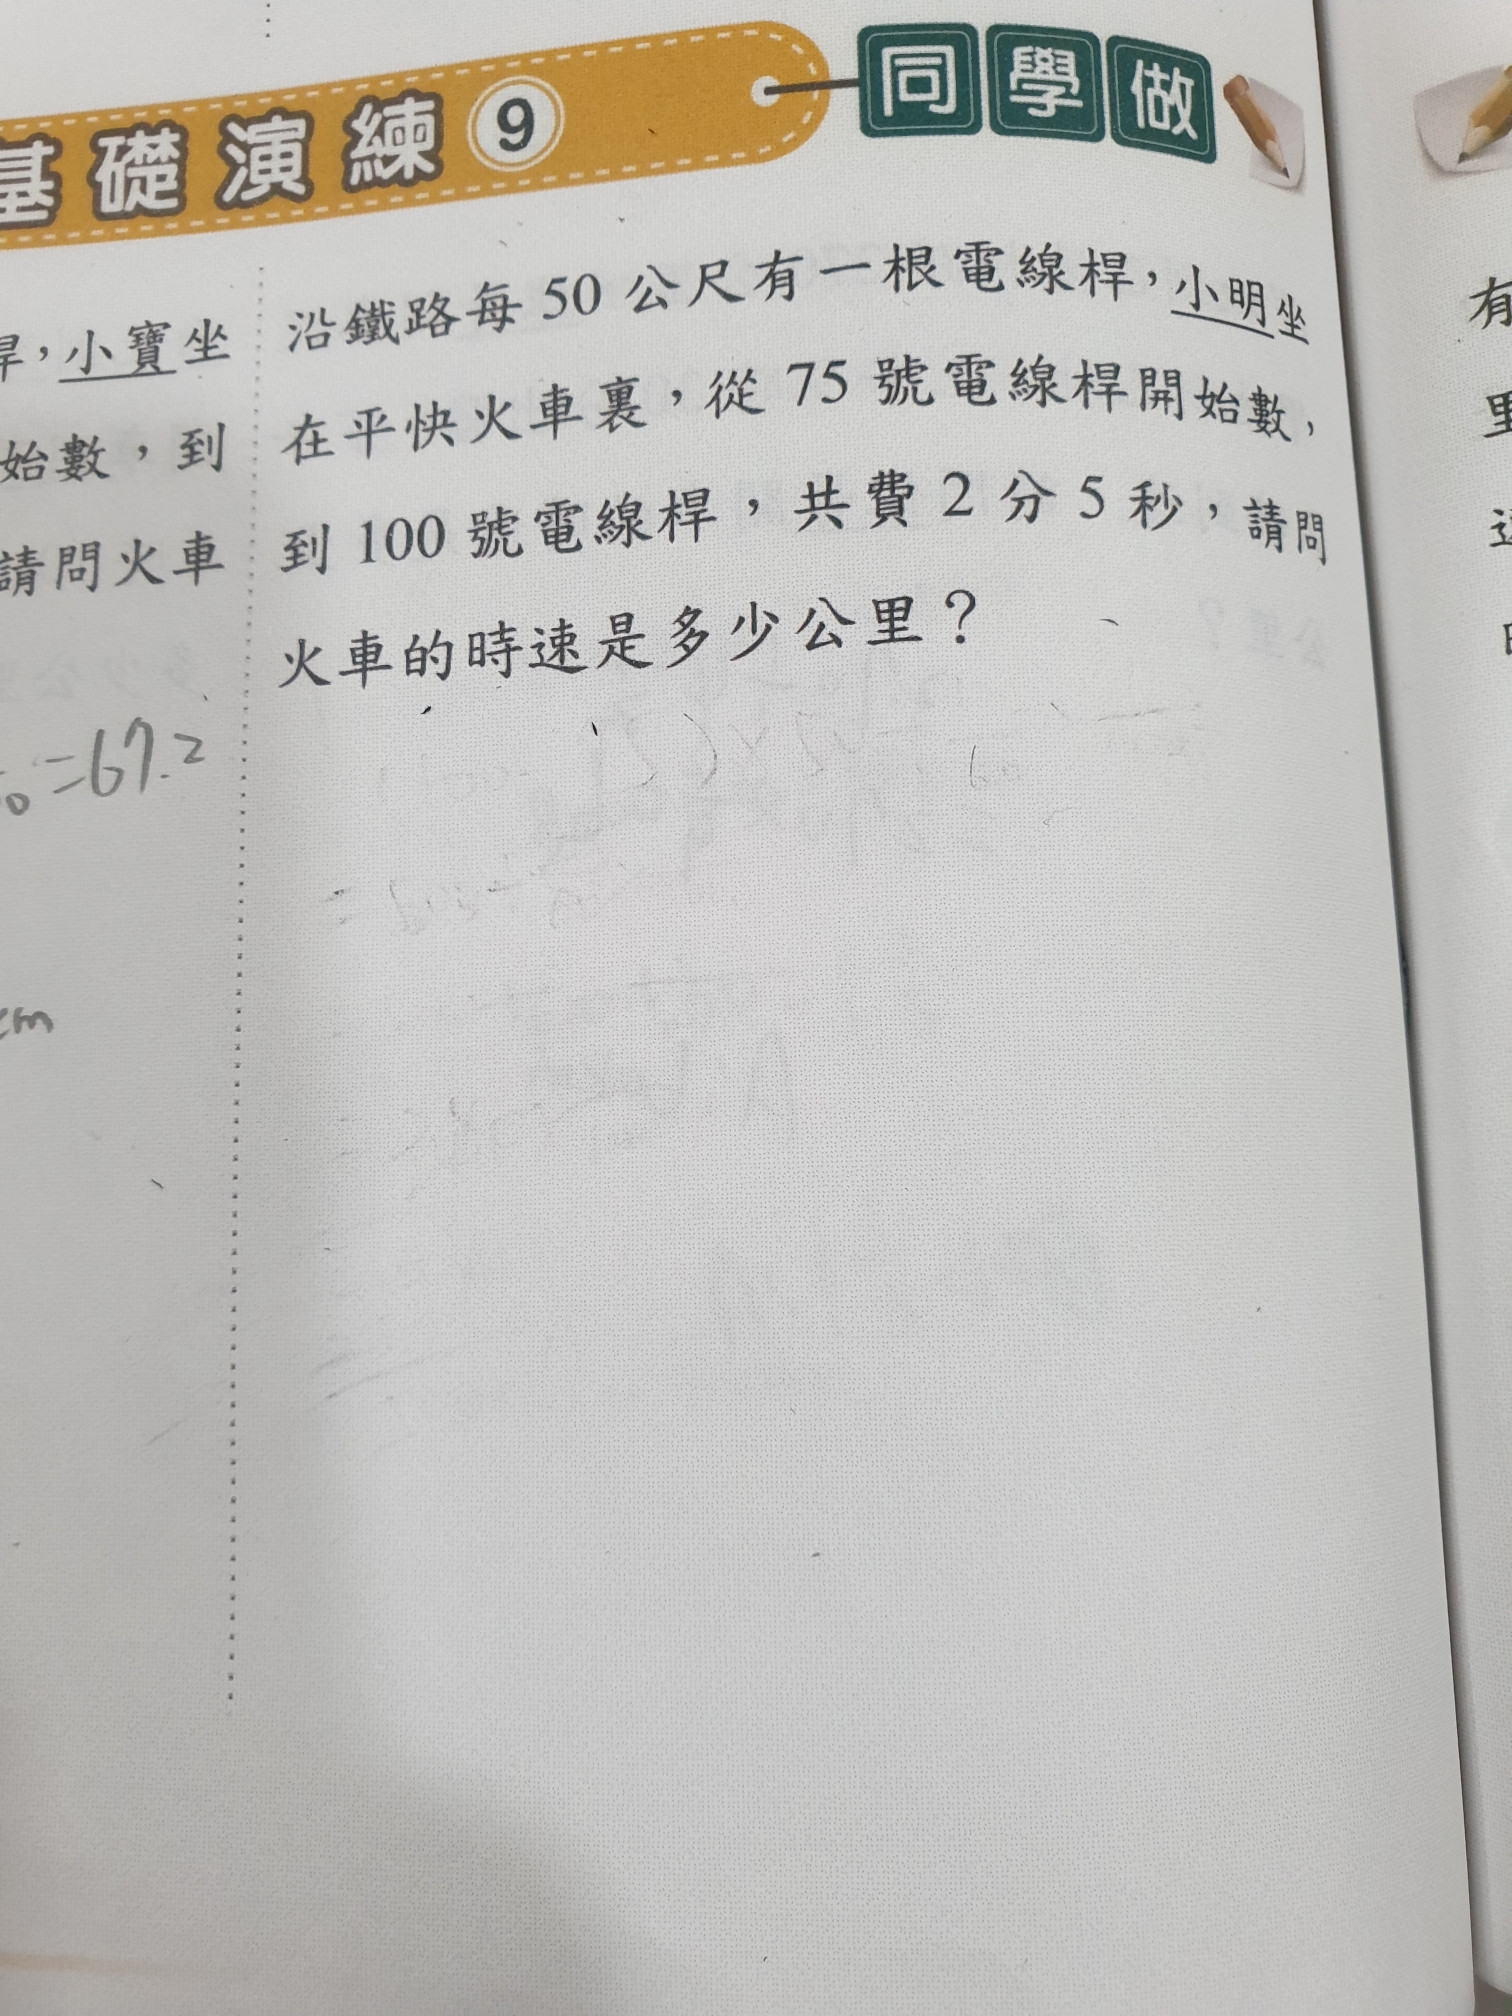 基礎演練9 同學做
桿，小寶坐
始數，到
請問火車
=67.2
cm
沿鐵路每 50 公尺有一根電線桿，小明坐
在平快火車裏，從 75 號電線桿開始數，
到 100 號電線桿，共費 2 分 5 秒，請問
火車的時速是多少公里？
有
里